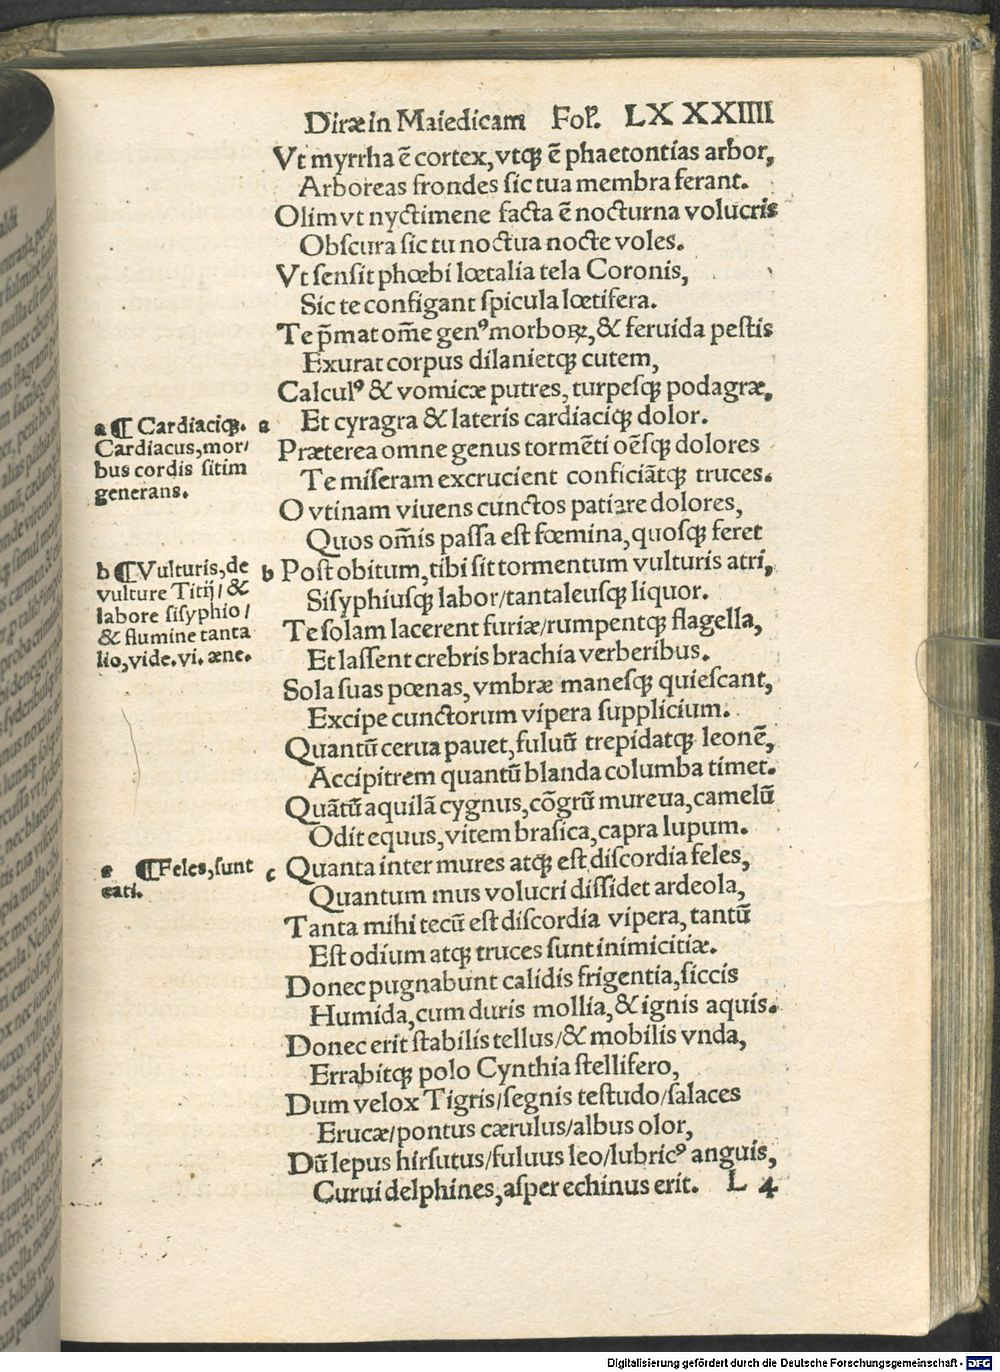 Diræ in Maledicam Fol. LXXXIIII
Vt myrrha ē cortex, vtq; ē phaetontias arbor,
Arboreas frondes sic tua membra ferant.
Olim vt nyctimene facta ē nocturna volucris
Obscura sic tu noctua nocte voles.
Vt sensit phœbi lœtalia tela Coronis,
Sic te configant spicula lœtifera.
Te p̄mat om̄e genꝰ morboꝝ, & feruida pestis
Exurat corpus dilanietq; cutem,
Calculꝰ & vomicæ putres, turpesq; podagræ,
a ¶ Cardiaciq;. a Et cyragra & lateris cardiaciq; dolor.
Cardiacus, mor/
bus cordis sitim
generans.
Præterea omne genus tormēti oēsq; dolores
Te miseram excrucient conficiātq; truces.
O vtinam viuens cunctos patiare dolores,
Quos om̄is passa est fœmina, quosq; feret
b ¶ Vulturis, de
vulture Titij / &
labore sisyphio /
& flumine tanta
lio, vide. vi. æne.
b Post obitum, tibi sit tormentum vulturis atri,
Sisyphiusq; labor / tantaleusq; liquor.
Te solam lacerent furiæ / rumpentq; flagella,
Et lassent crebris brachia verberibus.
Sola suas pœnas, vmbræ manesq; quiescant,
Excipe cunctorum vipera supplicium.
Quantū cerua pauet, fuluū trepidatq; leonē,
Accipitrem quantū blanda columba timet.
Quātū aquilā cygnus, cōgrū mureua, camelū
Odit equus, vitem brasica, capra lupum.
c ¶ Feles, sunt
cati.
c Quanta inter mures atq; est discordia feles,
Quantum mus volucri dissidet ardeola,
Tanta mihi tecū est discordia vipera, tantū
Est odium atq; truces sunt inimicitiæ.
Donec pugnabunt calidis frigentia, siccis
Humida, cum duris mollia, & ignis aquis.
Donec erit stabilis tellus / & mobilis vnda,
Errabitq; polo Cynthia stellifero,
Dum velox Tigris / segnis testudo / salaces
Erucæ / pontus cærulus / albus olor,
Dū lepus hirsutus / fuluus leo / lubricꝰ anguis,
Curui delphines, asper echinus erit. L 4
Digitalisierung gefördert durch die Deutsche Forschungsgemeinschaft - DFG